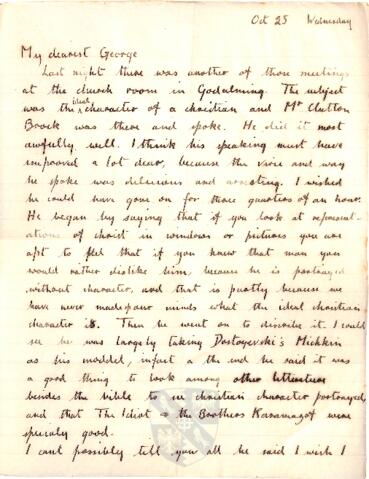 Oct 25 Wednesday
My dearest George
Last night there was another of those meetings
at the church room in Godalming. The subject
was the ideal character of a christian and Mr Clutton
Brock was there and spoke. He did it most
awfully well. I think his speaking must have
improved a lot dear, because the voice and way
he spoke was delicious and arresting. I wished
he could have gone on for three quarters of an hour.
He began by saying that if you look at represent-
ations of christ in windows or pictures you are
apt to feel that if you knew that man you
would rather dislike him, because he is portrayed
without character, and that is partly because we
have never made our minds what the ideal christian
character is. Then he went on to describe it. I could
see he was largely taking Dostoyevski's Mishkin
as his moddel, infact a the end he said it was
a good thing to look among other literature
besides the bible to see christian character portrayed,
and that The Idiot & the Brothers Karamazof were
specialy good.
I cant possibly tell you all he said I wish I